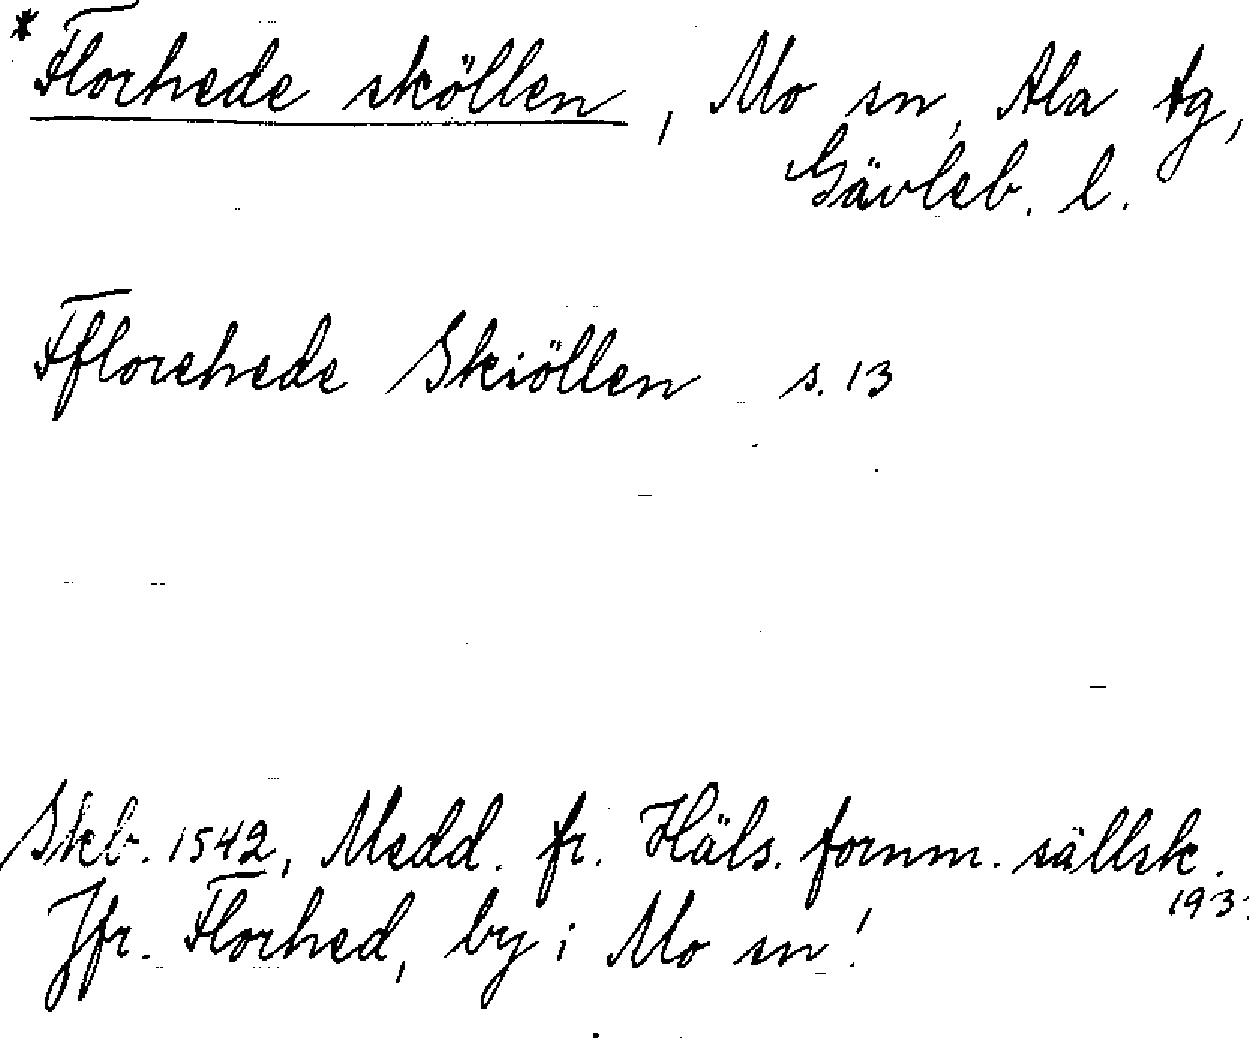 *Florhede sköllen, Mo sn, Ala tg,
Gävleb. l.
Fflorehede Skiöllen s. 13
Skb. 1542, Medd. fr. Häls. fornm. sällsk.
Jfr. Florhed, by i Mo sn!